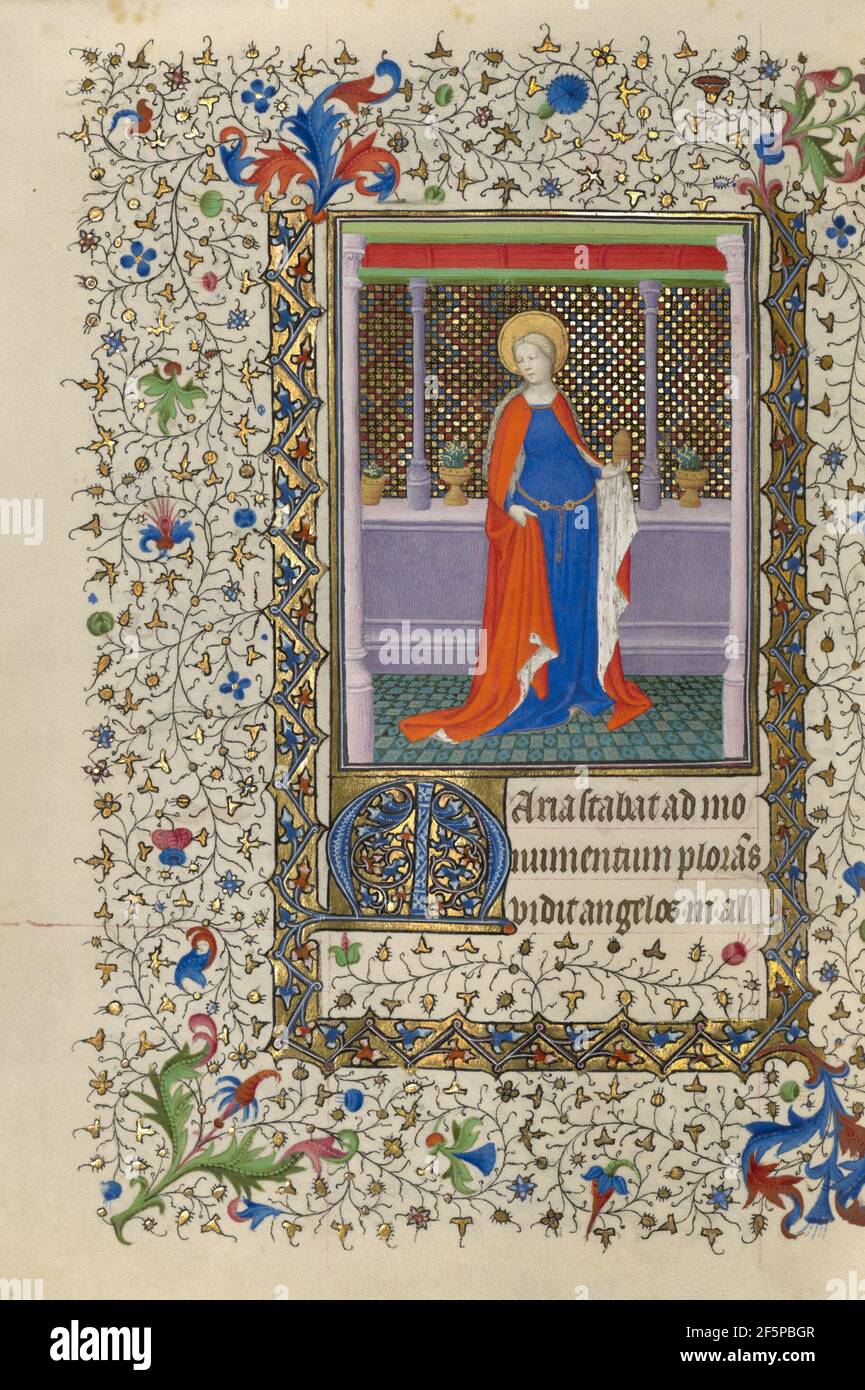 Maria stabat ad mo
numentum plorās
vidit angelos in al
alamy
Image ID: 2F5PBGR
www.alamy.com